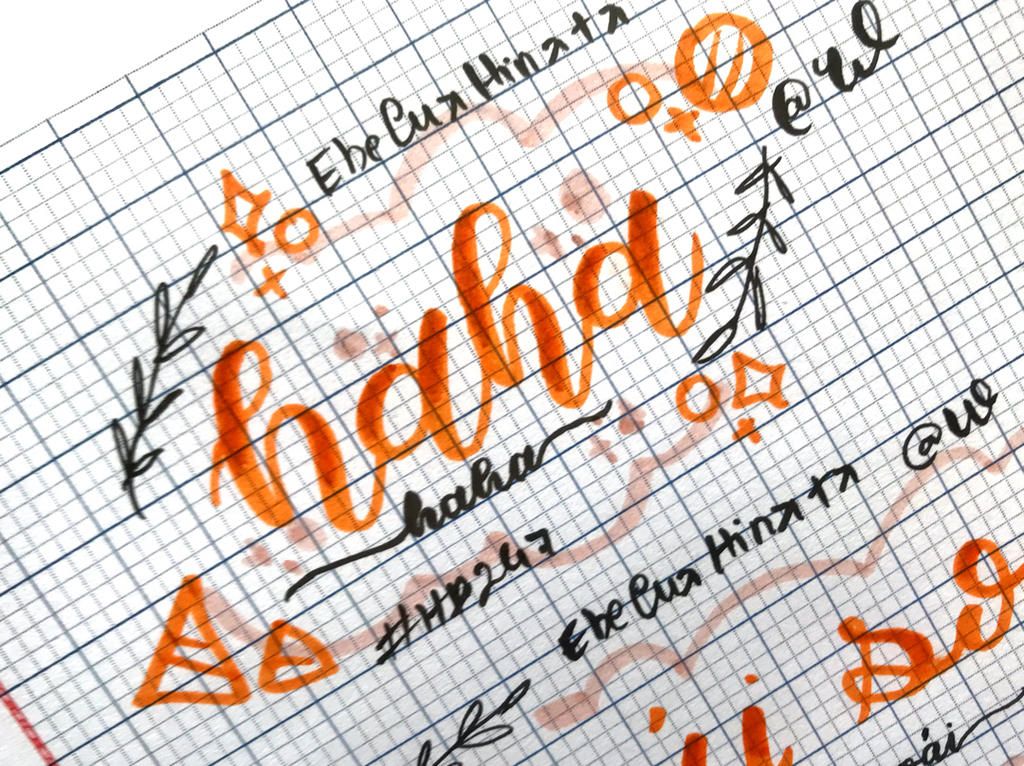 EbeCuaHinata
@W
haha
haha
#HD247
EbeCuaHinata
@W